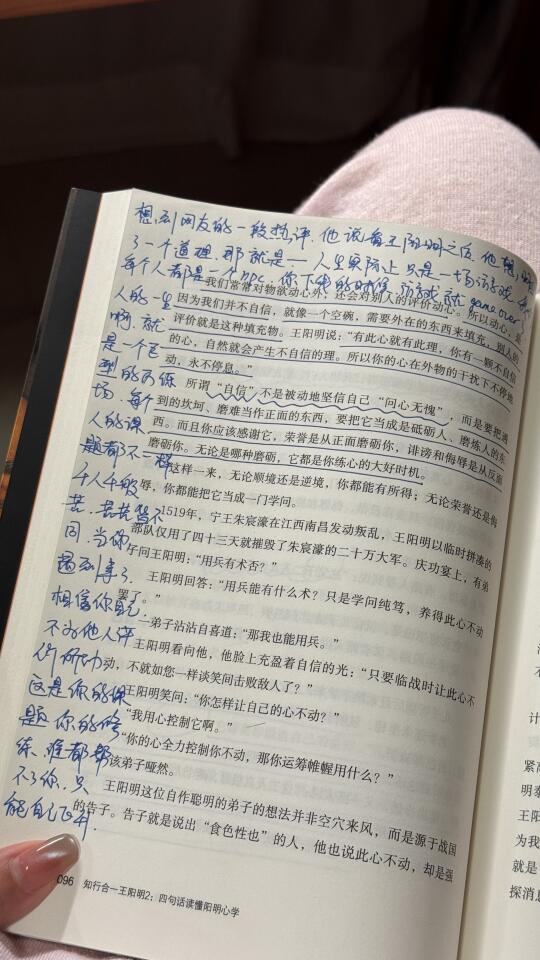 想到网友的一段热评，他说看王阳明之后，他想明
了一个道理，那就是——人生实际上只是一场游戏
每个人都是一个npc，你下线的时候，游戏就game over
人的一生
啊，就
是一个巨
型的历练
场，每个
人的课
题都不一样
千人千般
苦，苦苦皆不
同，当你
遇到事了，
相信你自己，
不为他人评
价所动
这是你的课
题，你的修
练，谁都帮
不了你，只
能自己飞升
我们常常对物欲动心外，还会对别人的评价动心。所以动心，是
因为我们并不自信，就像一个空碗，需要外在的东西来填充，别人的
评价就是这种填充物。王阳明说：“有此心就有此理，你有一颗不自信
的心，自然就会产生不自信的理。所以你的心在外物的干扰下不停地
动，永不停息。”
所谓“自信”不是被动地坚信自己“问心无愧”，而是要把遇
到的坎坷、磨难当作正面的东西，要把它当成是砥砺人、磨炼人的东
西。而且你应该感谢它，荣誉是从正面磨砺你，诽谤和侮辱是从反面
磨砺你。无论是哪种磨砺，它都是你练心的大好时机。
这样一来，无论顺境还是逆境，你都能有所得；无论荣誉还是侮
辱，你都能把它当成一门学问。
1519年，宁王朱宸濠在江西南昌发动叛乱，王阳明以临时拼凑的
部队仅用了四十三天就摧毁了朱宸濠的二十万大军。庆功宴上，有弟
子问王阳明：“用兵有术否？”
王阳明回答：“用兵能有什么术？只是学问纯笃，养得此心不动
罢了。”
一弟子沾沾自喜道：“那我也能用兵。”
王阳明看向他，他脸上充盈着自信的光：“只要临战时让此心不
动，不就如您一样谈笑间击败敌人了？”
王阳明笑问：“你怎样让自己的心不动？”
“我用心控制它啊。”
“你的心全力控制你不动，那你运筹帷幄用什么？”
该弟子哑然。
王阳明这位自作聪明的弟子的想法并非空穴来风，而是源于战国
的告子。告子就是说出“食色性也”的人，他也说此心不动，却是强
096 知行合一王阳明2：四句话读懂阳明心学
计
紧高
明泰
王阳
为我
就是
探消息